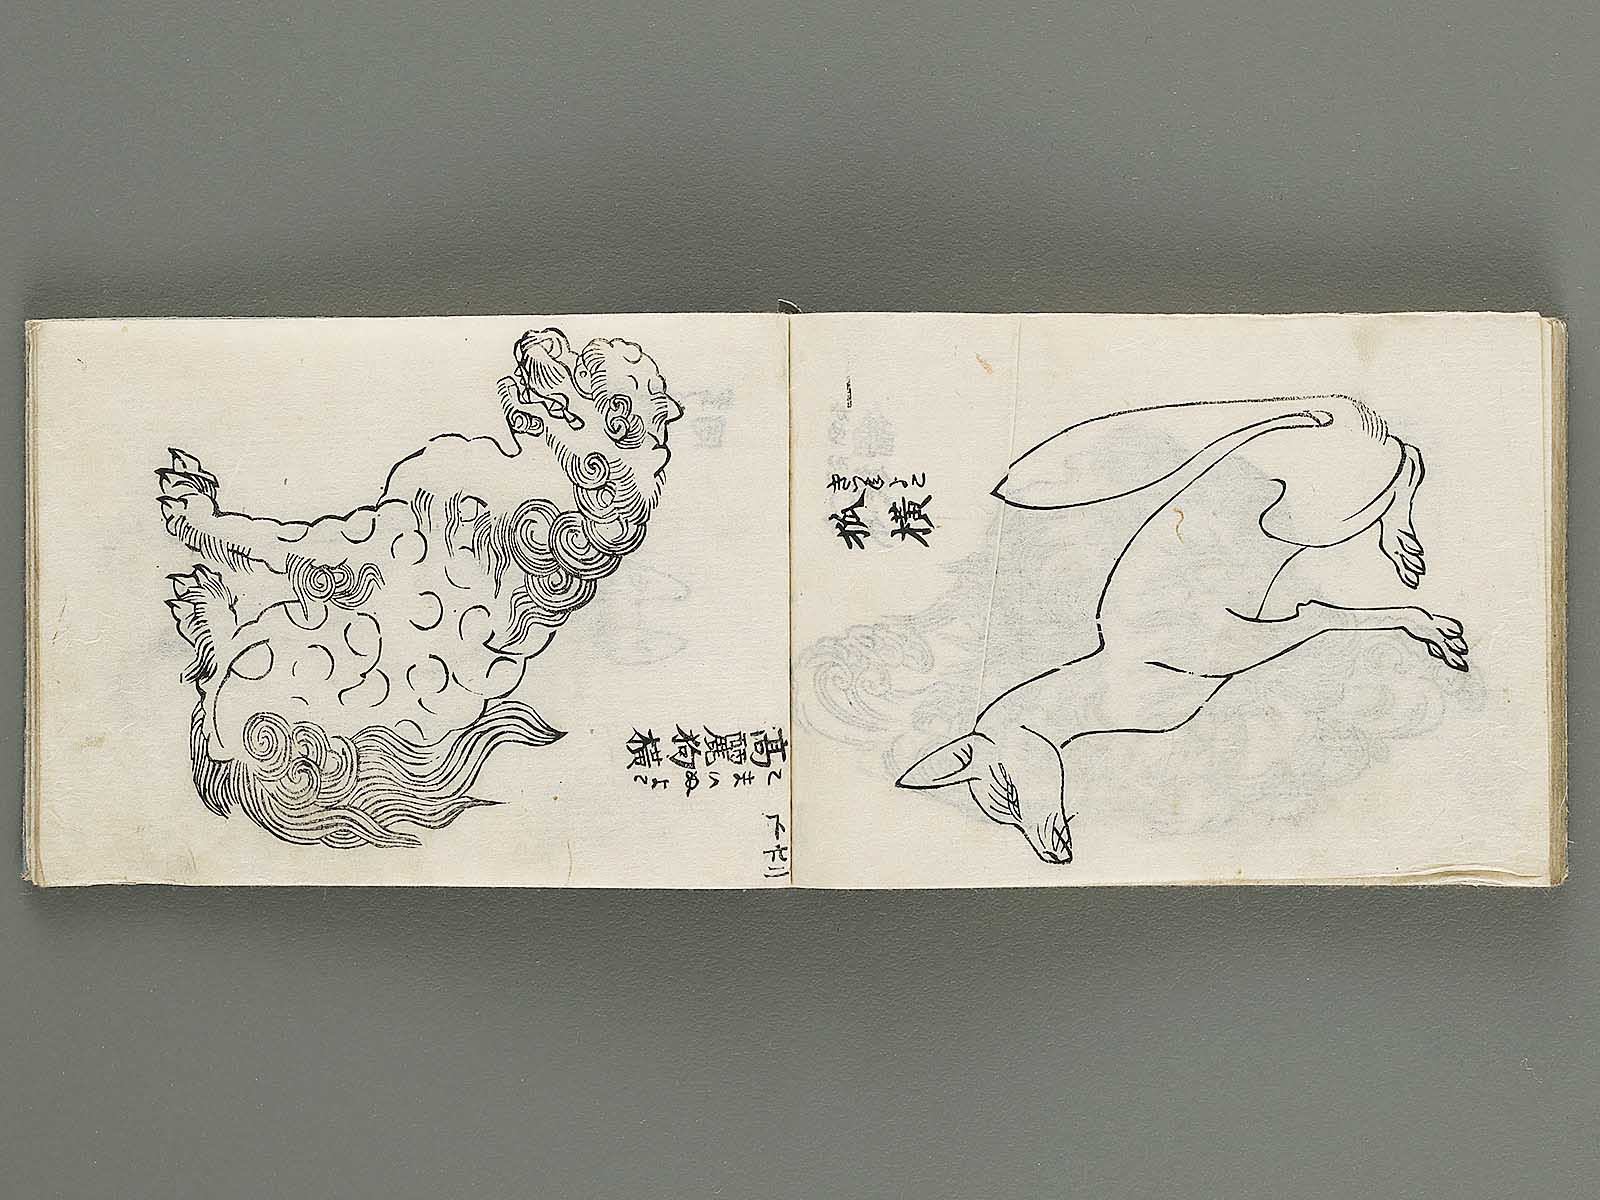 狐横
きつねよこ
高麗狗横
こまいぬよこ
下 廿二